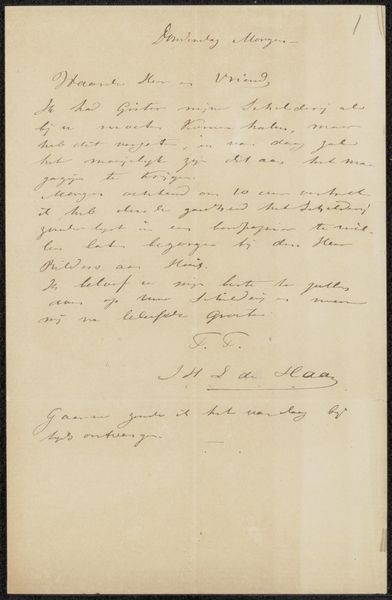 1
Donderdag Morgen
Waarde Heer en Vriend
Ik had Gister mijn Schilderij als
bij u moeten komen halen, maar
heb dit vergeten, en van daag zal
het moeijelijk zijn dit aan het ma
gazijn te krijgen
Morgen ochtend om 10 uur
ik heb dus de goedheid het Schilderij
zonder lijst in een te wil
len laten bezorgen bij den Heer
Bilders aan Huis.
Ik beloof u mijn beste te zullen
doen op uw Schilderij en noem
mij na beleefde Groete
T. T.
J H L de Haas
Gaarne zoude ik het van daag bij
tijds ontvangen